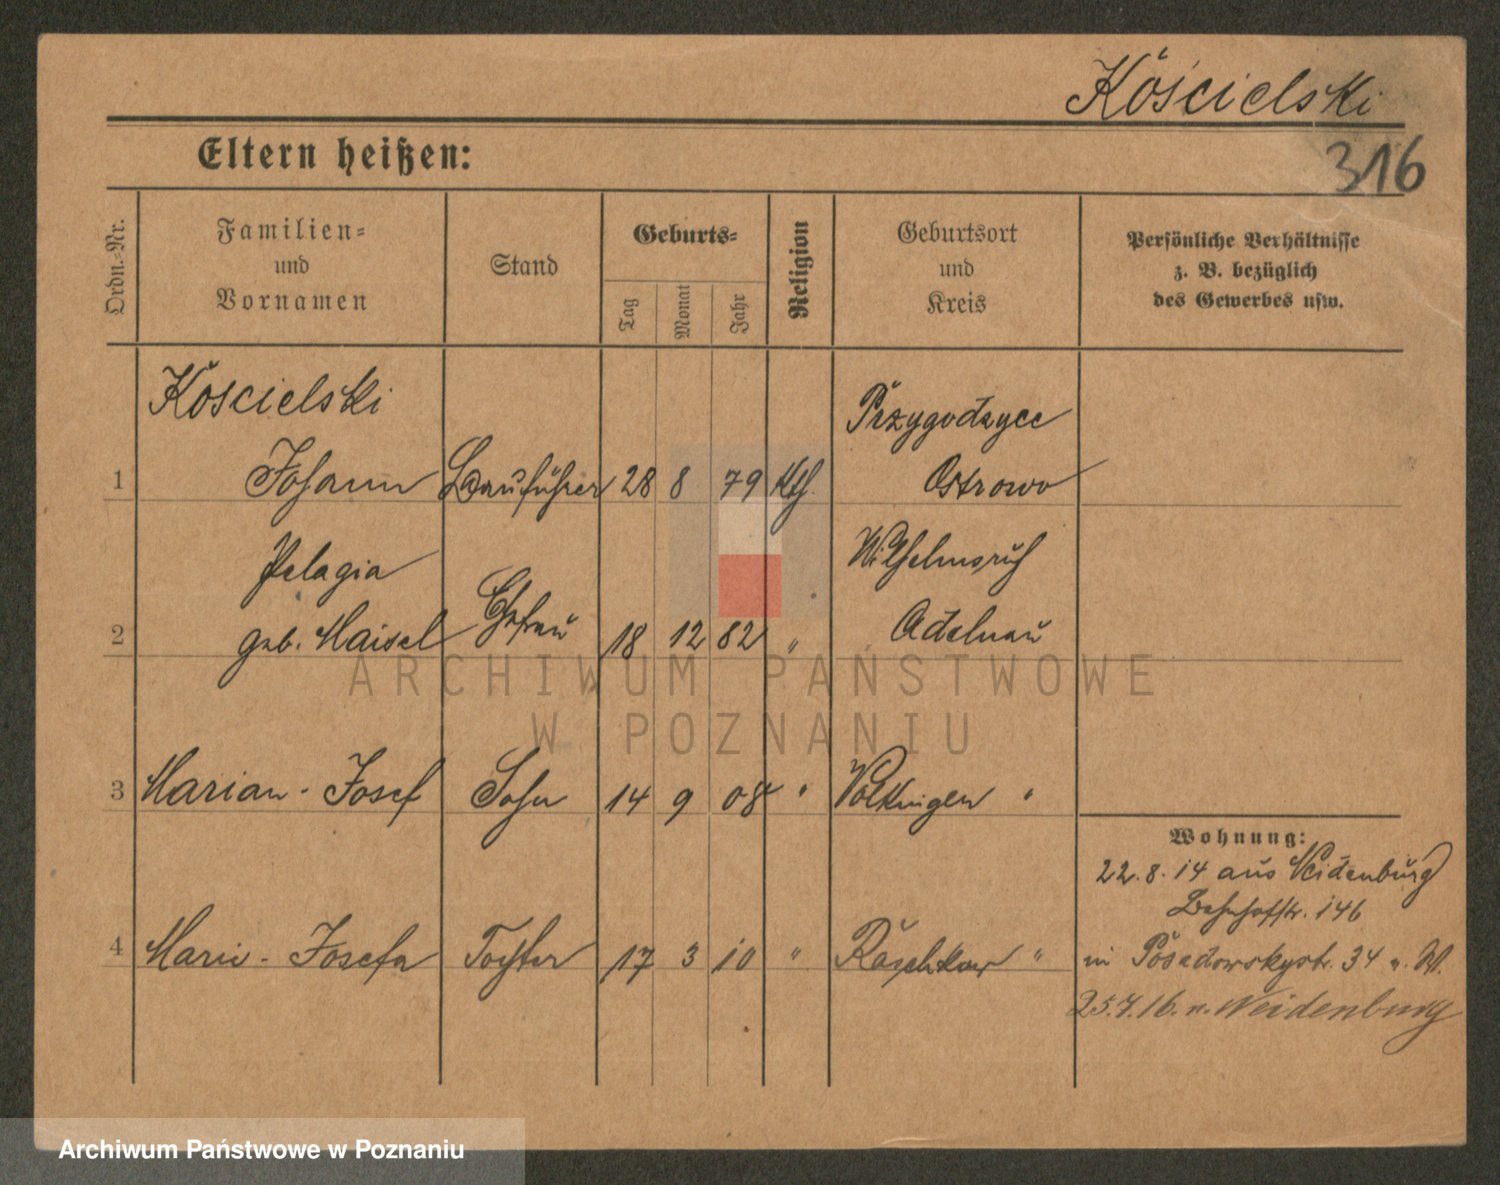 Kościelski
Eltern heißen:
316
Ordn.-Nr.
Familien-
und
Vornamen
Stand
Geburts-
Tag
Monat
Jahr
Religion
Geburtsort
und
Kreis
Persönliche Verhältnisse
z. B. bezüglich
des Gewerbes usw.
Kościelski
Przygodzyce
1 Johann Bauführer 28 8 79 Kth. Ostrowo
Pelagia Wilhelmsruh
2 geb. Maisel Ehefrau 18 12 82 " Adelnau
3 Marian - Josef Sohn 14 9 08 "
4 Marie - Josefa Tochter 17 3 10 " Raschkow "
Wohnung:
22.8.14 aus Neidenburg
Bahnhofstr. 146
in Posadowskystr. 34
25.7.16. n. Neidenburg
ARCHIWUM PAŃSTWOWE
W POZNANIU
Archiwum Państwowe w Poznaniu